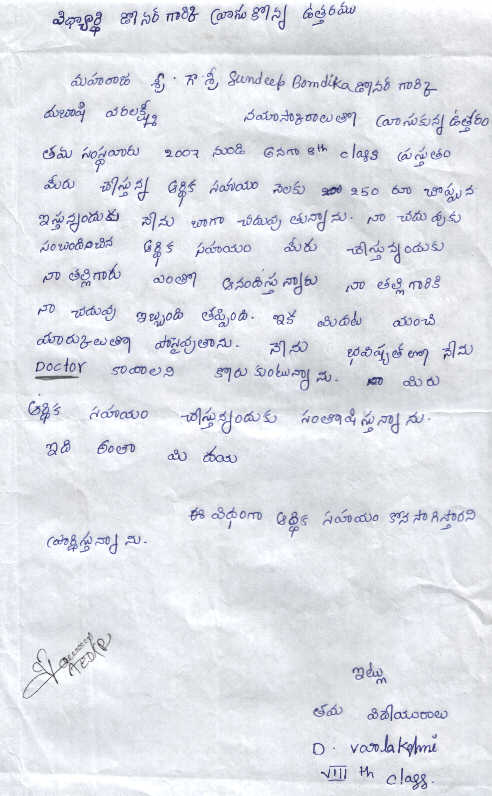 విధ్యార్థి డోనర్ గారికి వ్రాయు కొన్న ఉత్తరము
మహారాజ శ్రీ. గౌ శ్రీ Sundeep Bomdika డోనర్ గారికి
దుబాషి వరలక్ష్మీ నయాసాకిరాలుతో వ్రాసుకున్న ఉత్తరం
తమ సంస్థవారు 2007 నుండి అనగా 8th class ప్రస్తుతం
మీరు చేస్తున్న ఆర్థిక సహాయం నెలకు 250 రూ చొప్పున
ఇస్తున్నందుకు నేను బాగా చదువు తున్నాను. నా చదువుకు
సంబందించిన ఆర్థిక సహాయం మీరు చేస్తున్నందుకు
నా తల్లిగారు ఎంతో ఆనందిస్తున్నారు నా తల్లి గారికి
నా చదువు ఇబ్బంది తప్పింది. ఇక మిదట మంచి
మారుకులతో పాసైవుతాను. నేను భవిష్యత లో నేను
Doctor కావాలని కోరు కుంటున్నాను. మిరు
ఆర్థిక సహాయం చేస్తున్నందుకు సంతోషిస్తున్నాను.
ఇది అంతా మి దయ
ఈ విధంగా ఆర్థిక సహాయం కొన సాగిస్తారని
ప్రార్థిస్తున్నాను.
ఇట్లు
తమ విదేయురాలు
D. varalakshmi
VIII th class.